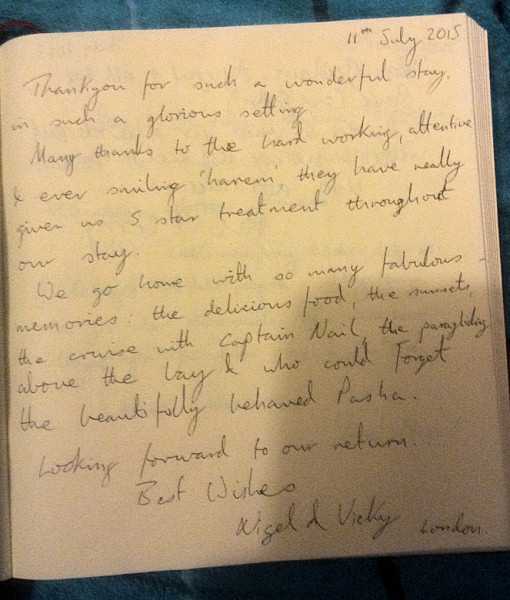 11th July 2015
Thankyou for such a wonderful stay,
in such a glorious setting.
Many thanks to the hard working, attentive
& ever smiling 'harem', they have really
given us 5 star treatment throughout
our stay.
We go home with so many fabulous
memories: the delicious food, the sunsets,
the cruise with Captain Nail, the paragliding
above the bay & who could forget
the beautifully behaved Pasha.
Looking forward to our return...
Best Wishes
Nigel & Vicky London.